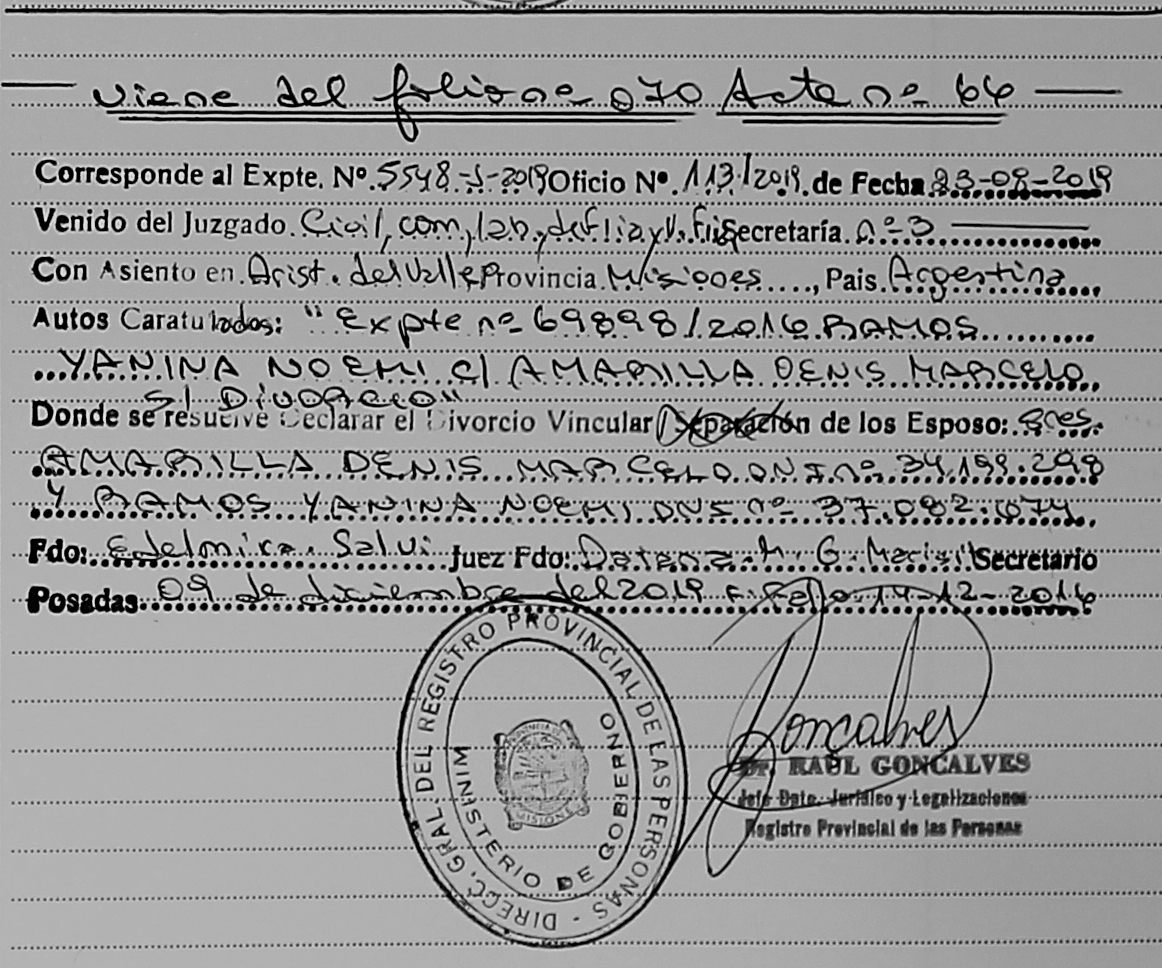 Viene del folio nº 070 Acta nº 66
Corresponde al Expte. Nº 5548-J-2019 Oficio Nº 113/2019 de Fecha 23-08-2019
Venido del Juzgado Civil, com, lab, de flia y V. Fiscretaría nº 3
Con Asiento en Arist. del Valle Provincia Misiones, Pais Argentina
Autos Caratulados: "Expte nº 69898/2016 RAMOS
YANINA NOEMI C/ AMARILLA DENIS MARCELO
S/ Divorcio"
Donde se resuelve Declarar el Divorcio Vincular / Separación de los Esposo: Sres.
AMARILLA DENIS MARCELO DNI nº 34.199.298
Y RAMOS YANINA NOEMI DNI nº 37.082.074
Fdo: Edelmira Salvi Juez Fdo: M. G. Secretario
Posadas 09 de diciembre del 2019 F. Fallo 14-12-2016
DIRECC. GRAL. DEL REGISTRO PROVINCIAL DE LAS PERSONAS
MINISTERIO DE GOBIERNO
MISIONES
Goncalves
Dr. RAUL GONCALVES
Jefe Dpto. Jurídico y Legalizaciones
Registro Provincial de las Personas